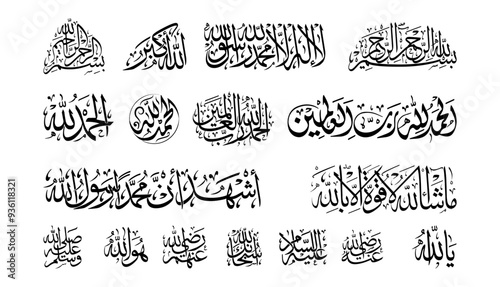 بسم الله الرحمن الرحيم
لا إله إلا الله محمد رسول الله
الله أكبر
بسم الله الرحمن الرحيم
الحمد لله رب العالمين
الحمد لله رب العالمين
الحمد لله
الحمد لله
ما شاء الله لا قوة إلا بالله
أشهد أن محمد رسول الله
يا الله
رضي الله عنه
عليه السلام
سبحان الله
رضي الله عنهم
هو الله
صلى الله عليه وسلم
Adobe Stock | #936118321